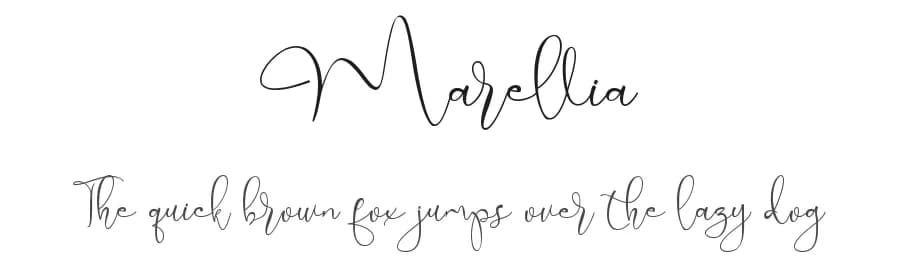 Marellia
The quick brown fox jumps over the lazy dog